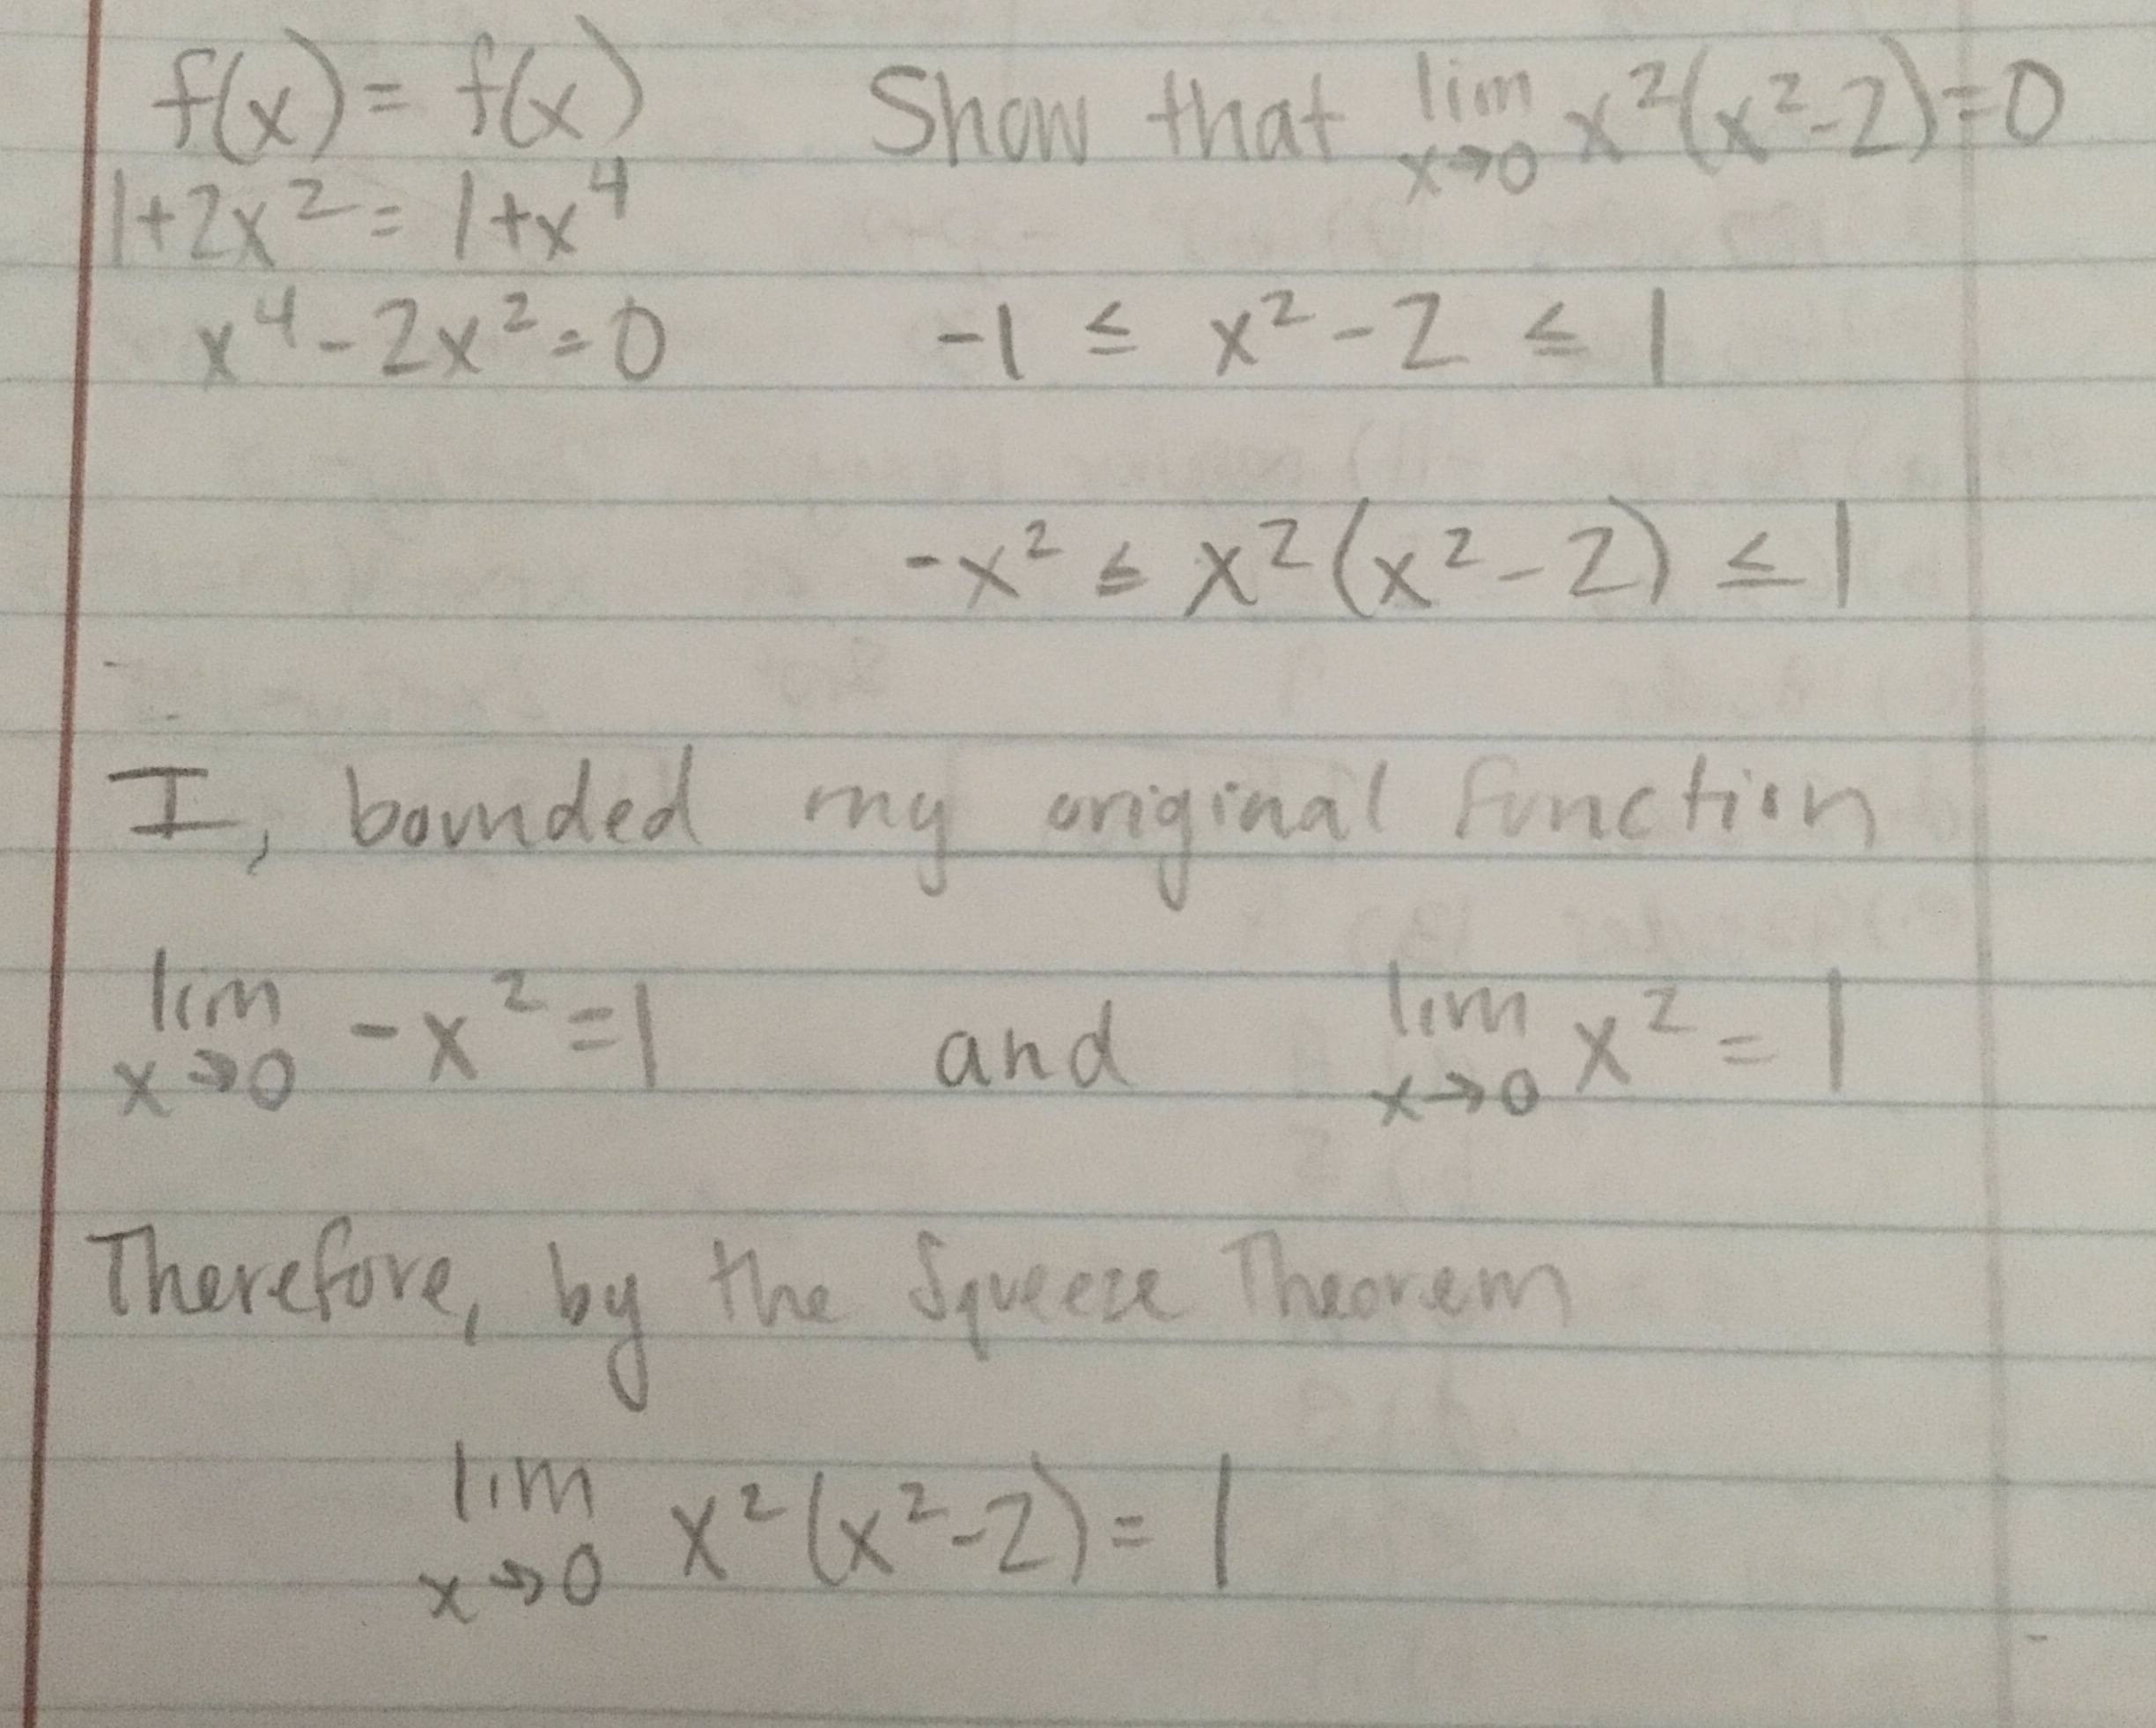 f(x) = f(x)
1+2x² = 1+x⁴
x⁴-2x²=0
Show that lim x→0 x²(x²-2)=0
-1 ≤ x²-2 ≤ 1
-x² ≤ x²(x²-2) ≤ 1
I, bounded my original function
lim x→0 -x² = 1 and lim x→0 x² = 1
Therefore, by the Squeeze Theorem
lim x→0 x²(x²-2) = 1